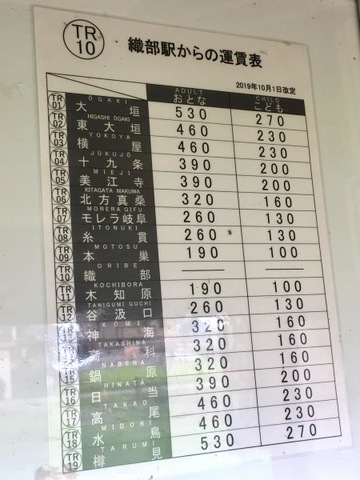 TR
10
織部駅からの運賃表
2019年10月1日改定
ADULT
おとな
CHILD
こども
TR 01 ŌGAKI 大垣 530 270
TR 02 HIGASHI ŌGAKI 東大垣 460 230
TR 03 YOKOYA 横屋 460 230
TR 04 JŪKUJŌ 十九条 390 200
TR 05 MIEJI 美江寺 390 200
TR 06 KITAGATA MAKUWA 北方真桑 320 160
TR 07 MORERA GIFU モレラ岐阜 260 130
TR 08 ITONUKI 糸貫 260 130
TR 09 MOTOSU 本巣 190 100
TR 10 ORIBE 織部
TR 11 KOCHIBORA 木知原 190 100
TR 12 TANIGUMI GUCHI 谷汲口 260 130
KŌMI 神海 320 160
TAKASHINA 高科 320 160
TR 15 NABERA 鍋原 320 160
TR 16 HINATA 日当 390 200
TR 17 TAKAO 高尾 460 230
TR 18 水鳥 460 230
TR 19 TARUMI 樽見 530 270